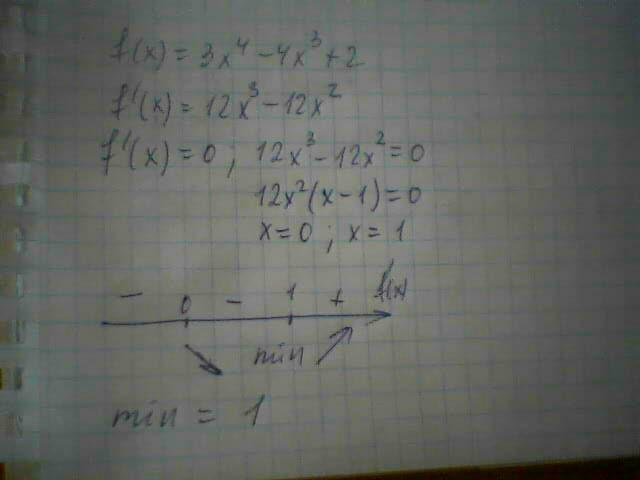 f(x) = 3x⁴ - 4x³ + 2
f'(x) = 12x³ - 12x²
f'(x) = 0 ; 12x³ - 12x² = 0
12x²(x - 1) = 0
x = 0 ; x = 1
- 0 - 1 + f'(x)
min
min = 1